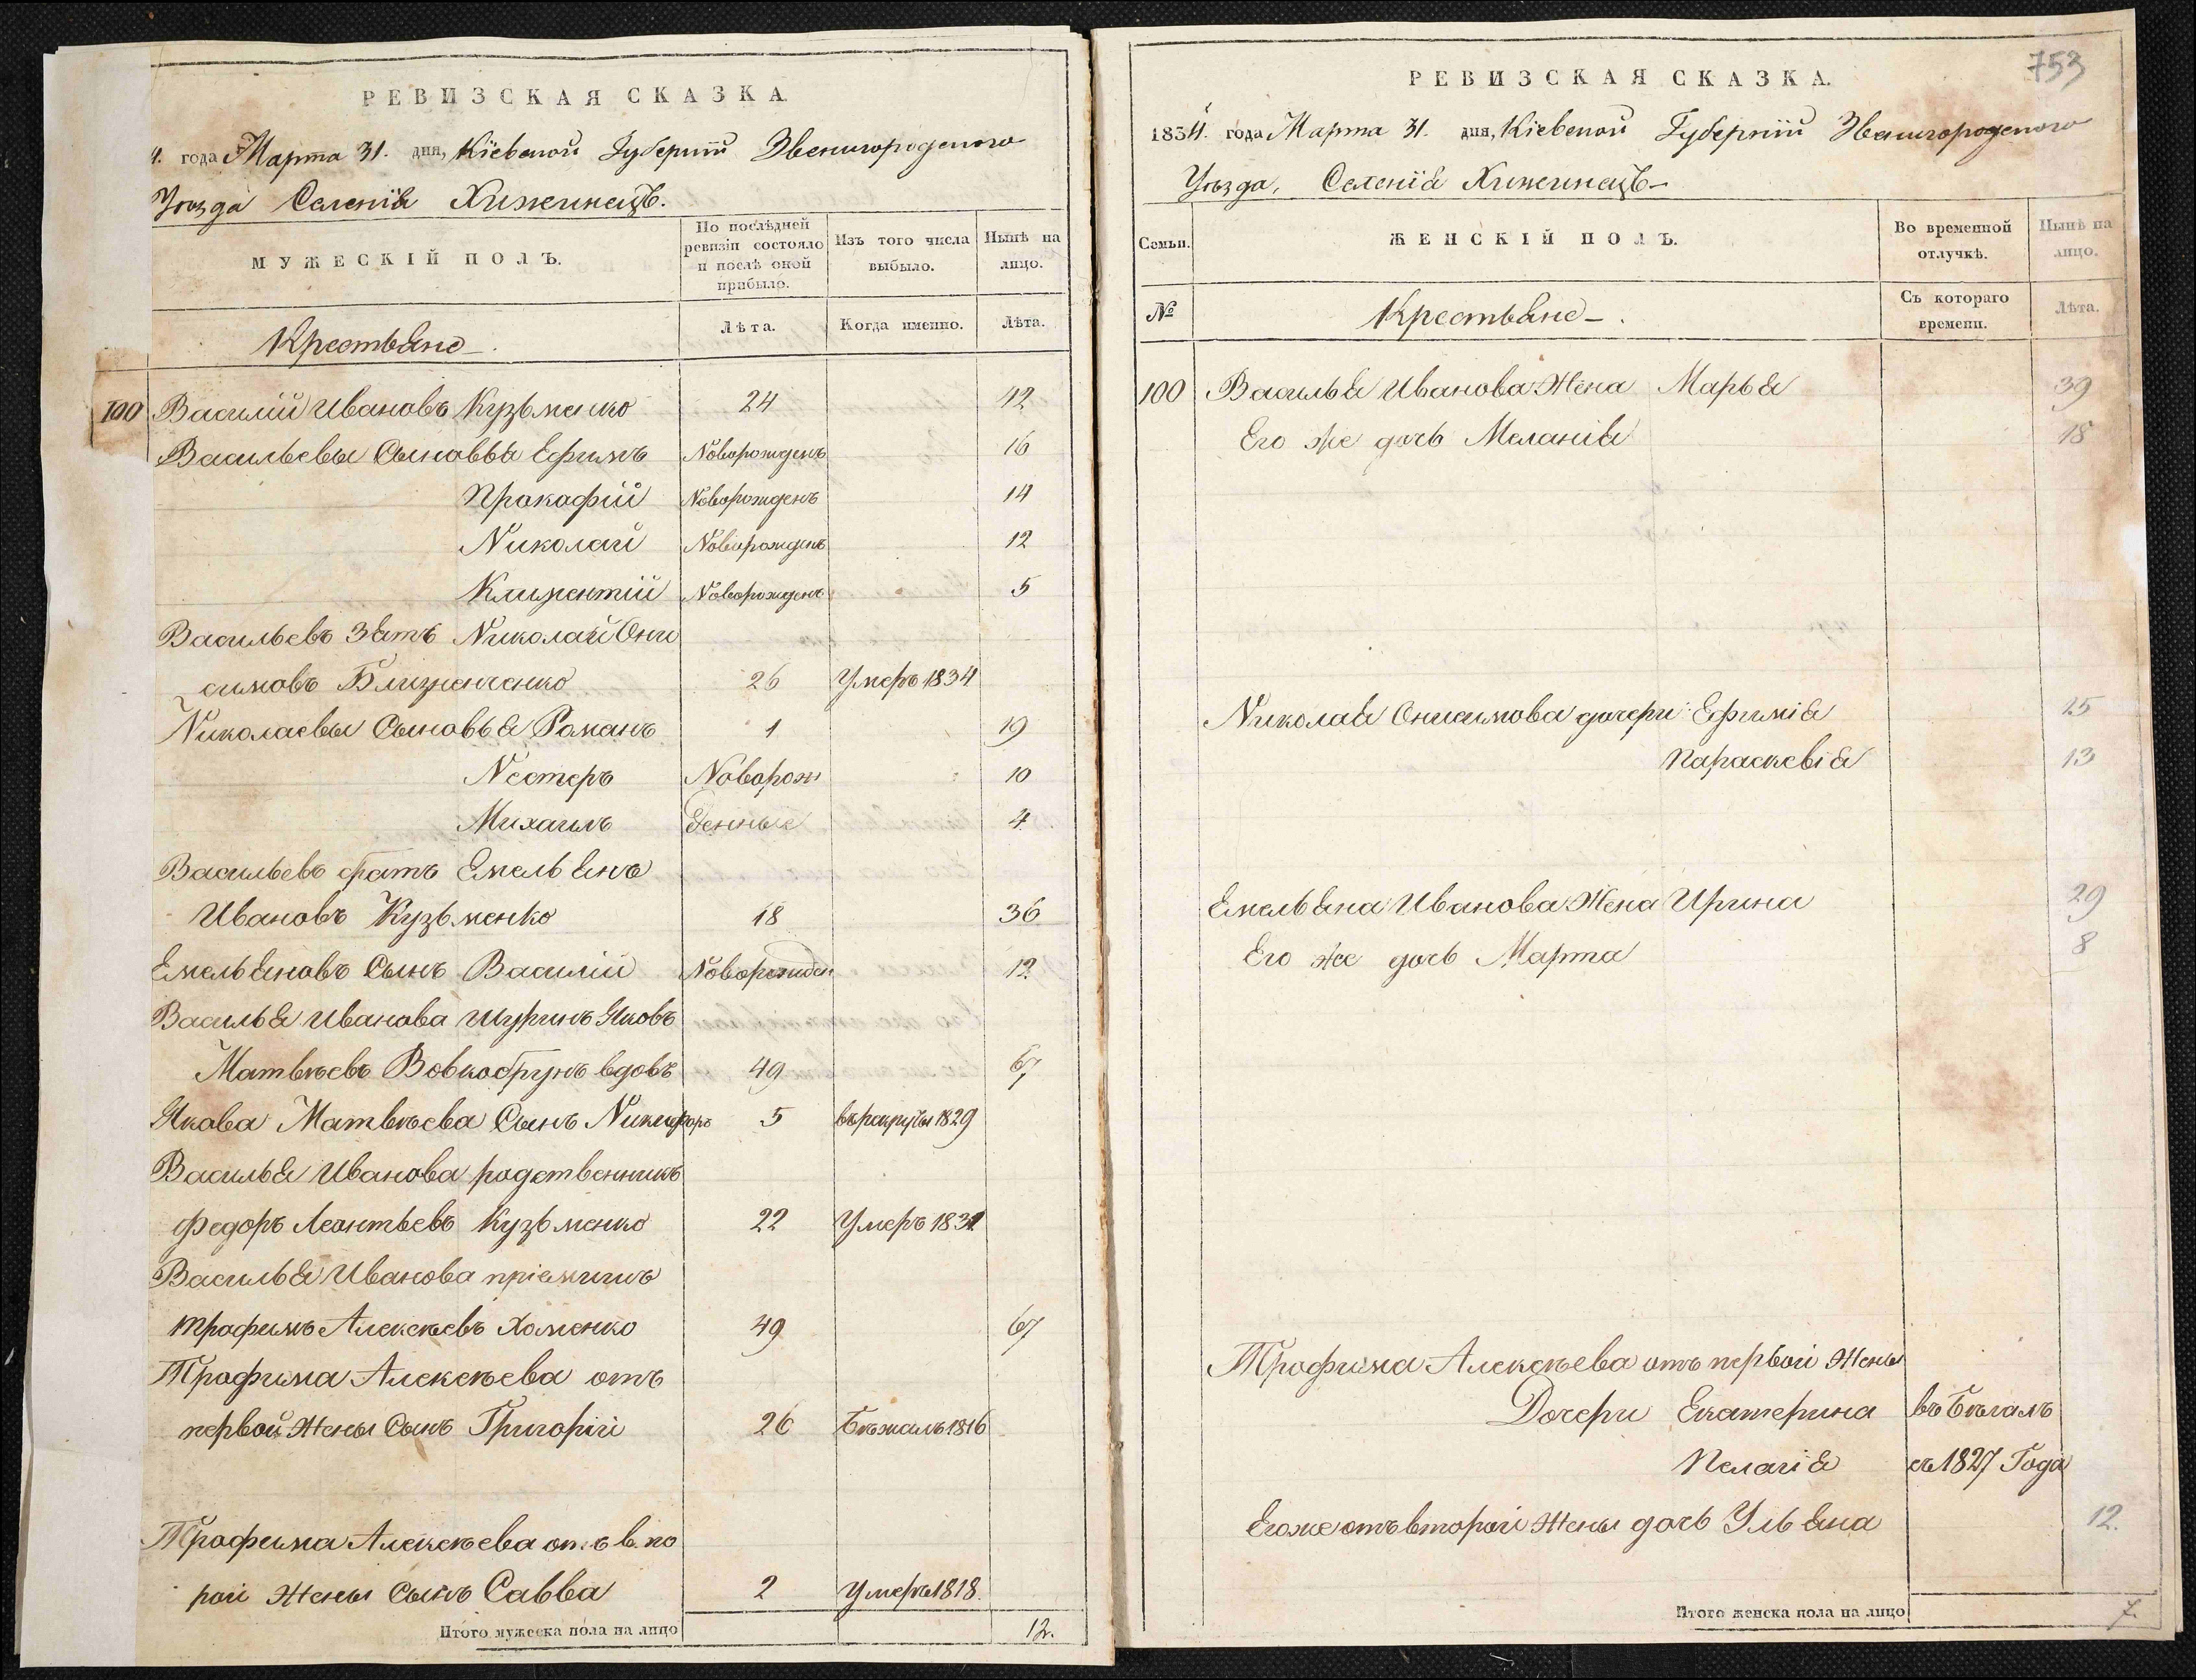 РЕВИЗСКАЯ СКАЗКА.
4. года Марта 31. дня, Кіевской Губерніи Звенигородского
Уѣзда Селенія Хижинецъ.
МУЖЕСКІЙ ПОЛЪ.
По послѣдней ревизіи состояло и послѣ оной прибыло.
Изъ того числа выбыло.
Нынѣ на лицо.
Крестьяне
Лѣта.
Когда именно.
Лѣта.
100 Василій Ивановъ Кузьменко 24 42
Васильевы Сыновья Ефимъ Новорожденъ 16
Прокофій Новорожденъ 14
Николай Новорожденъ 12
Климентій Новорожденъ 5
Васильевъ Зять Николай Они
симовъ 26 Умеръ 1834
Николаевы Сыновья Романъ 1 19
Нестеръ Новорож 10
Михаилъ денные 4
Васильевъ братъ Емельянъ
Ивановъ Кузьменко 18 36
Емельяновъ Сынъ Василій Новорожден 12
Василья Иванова шуринъ Яковъ
Матвѣевъ Вовкобрунъ вдовъ 49 67
Якова Матвѣева Сынъ Никифоръ 5 въ рекруты 1829
Василья Иванова родственникъ
Федоръ Леонтьевъ Кузьменко 22 Умеръ 1831
Василья Иванова пріемышъ
Трофимъ Алексѣевъ Хоменко 49 67
Трофима Алексѣева отъ
первой Жены Сынъ Григорій 26 Бѣжалъ 1816
Трофима Алексѣева отъ вто
рой Жены Сынъ Савва 2 умеръ 1818.
Итого мужеска пола на лицо 12.
753
РЕВИЗСКАЯ СКАЗКА.
1834. года Марта 31. дня, Кіевской Губерніи Звенигородского
Уѣзда, Селенія Хижинецъ
Семьи.
ЖЕНСКІЙ ПОЛЪ.
Во временной отлучкѣ.
Нынѣ на лицо.
№
Крестьяне
Съ котораго времени.
Лѣта.
100 Василья Иванова Жена Марья 39
Его же дочь Меланія 18
Николая Онисимова дочери Ефимія 15
Параскевія 13
Емельяна Иванова Жена Ирина 29
Его же дочь Марта 8
Трофима Алексѣева отъ первой Жены
Дочери Екатерина въ Бѣгахъ
Пелагія съ 1827 Года
Его же отъ второй Жены дочь Ульяна 12.
Итого женска пола на лицо 7.